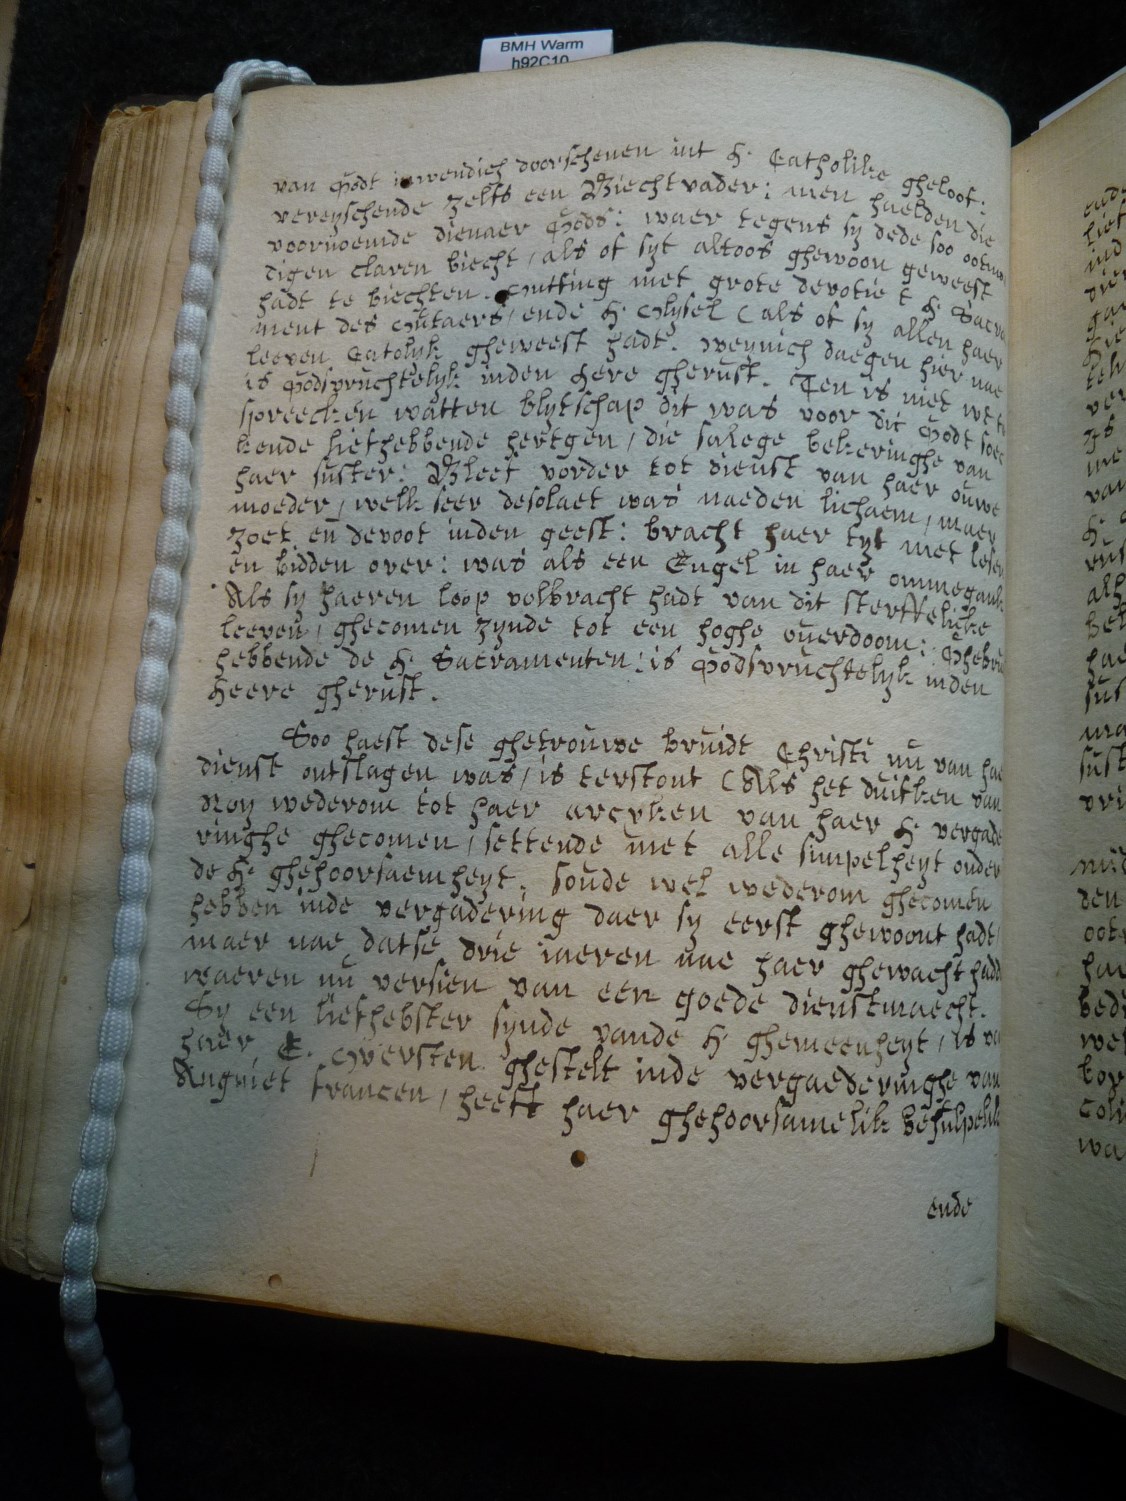 BMH Warm
h92C10
van Godt inwendich doorschenen int H. Catholike gheloof:
vereyschende zelfs een Biechtvader: men haelden die
voornoemde dienaer Gods: waer tegens sy dede soo ootmo
digen claren biecht, als of syt altoos ghewoon geweest
hadt te biechten. Nutting met grote devotie t H. Sacra
ment des Altaers, ende H. Olysel (als of sy allen haer
leeven Catolyk gheweest hadt. Weynich daegen hier nae
is Godtvruchtelyk inden Here gherust. Ten is niet wt te
spreecken watten blytschap dit was voor dit Godt soec
kende liefhebbende hertgen, die salege bekeringhe van
haer suster: Bleef vorder tot dienst van haer ouwe
moeder, welk seer desolaet was naeden lichaem, maer
zoet en devoot inden geest: bracht haer tyt met lesen
en bidden over: was als een Engel in haer ommegank
Als sy haeren loop volbracht hadt van dit sterffelicke
leeven, ghecomen zynde tot een hoghe ouerdoom: Ghebru
hebbende de H. Sacramenten: is Godtvruchtelyk inden
Heere gherust.
Soo haest dese ghetrouwe bruidt Christi nu van hae
dienst ontslagen was, is terstont (Als het duifken van
Noy wederom tot haer arcyken van haer H. vergade
ringhe ghecomen, settende met alle simpelheyt onder
de H. ghehoorsaemheyt. Soude wel wederom ghecomen
hebben inde vergadering daer sy eerst ghewoont hadt,
maer nae datse drie iaeren nae haer ghewacht hadd
waeren nu versien van een goede dienstmaecht.
Sy een liefhebster synde vande H. ghemeenheyt, is va
haer E. Oversten ghestelt inde vergaederinghe van
Angniet francen, heeft haer ghehoorsamelik behulpelik
ende